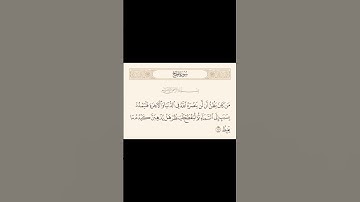 سُورَةُ الحَجِّ
بِسْمِ اللَّهِ الرَّحْمَٰنِ الرَّحِيمِ
مَن كَانَ يَظُنُّ أَن لَّن يَنصُرَهُ اللَّهُ فِي الدُّنْيَا وَالْآخِرَةِ فَلْيَمْدُدْ
بِسَبَبٍ إِلَى السَّمَاءِ ثُمَّ لْيَقْطَعْ فَلْيَنظُرْ هَلْ يُذْهِبَنَّ كَيْدُهُ مَا
يَغِيظُ